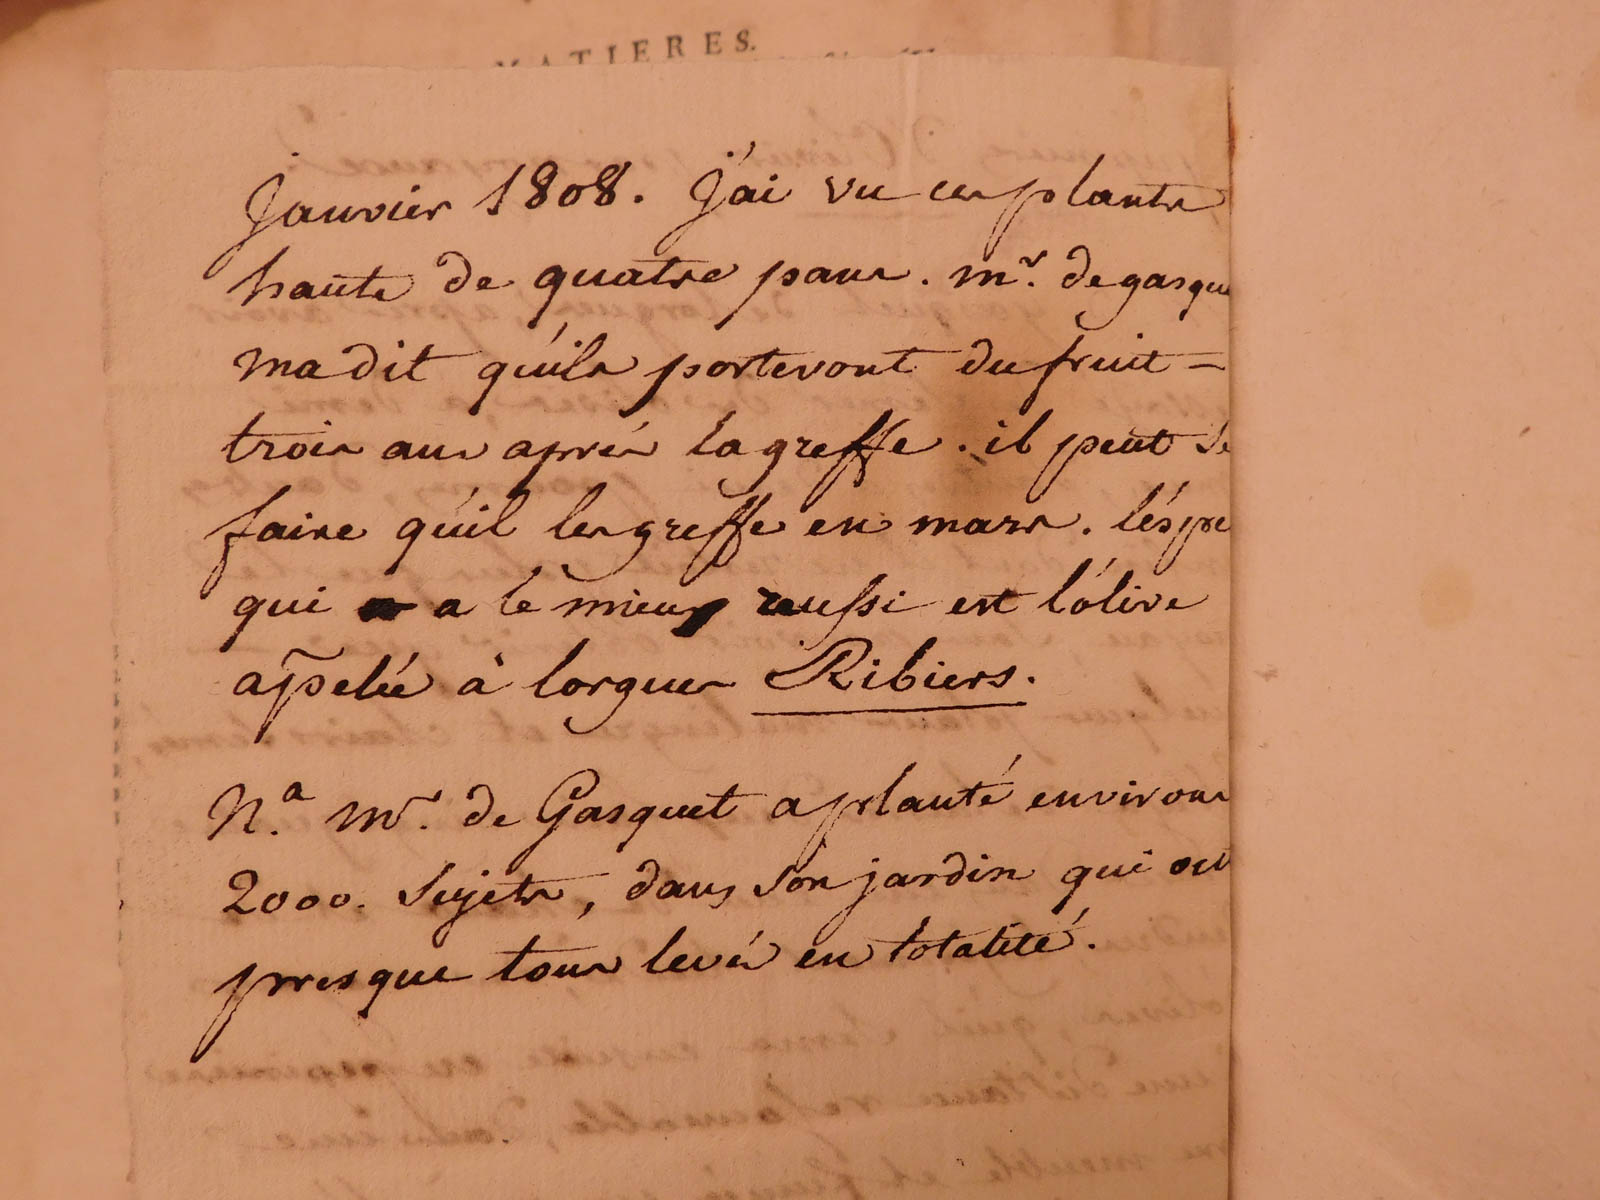 MATIERES.
Janvier 1808. j'ai vu ces plants
haute de quatre pans. mr. de gasque
ma dit qu'ils porteront du fruit -
trois ans après la greffe. il peut se
faire qu'il les greffe en mars. l'éspe
qui a le mieux reussi est l'olive
appelée à lorgues Ribiers.
Na. mr. de Gasquet a planté environs
2000. sujets, dans son jardin qui ont
presque tous levés en totalité.